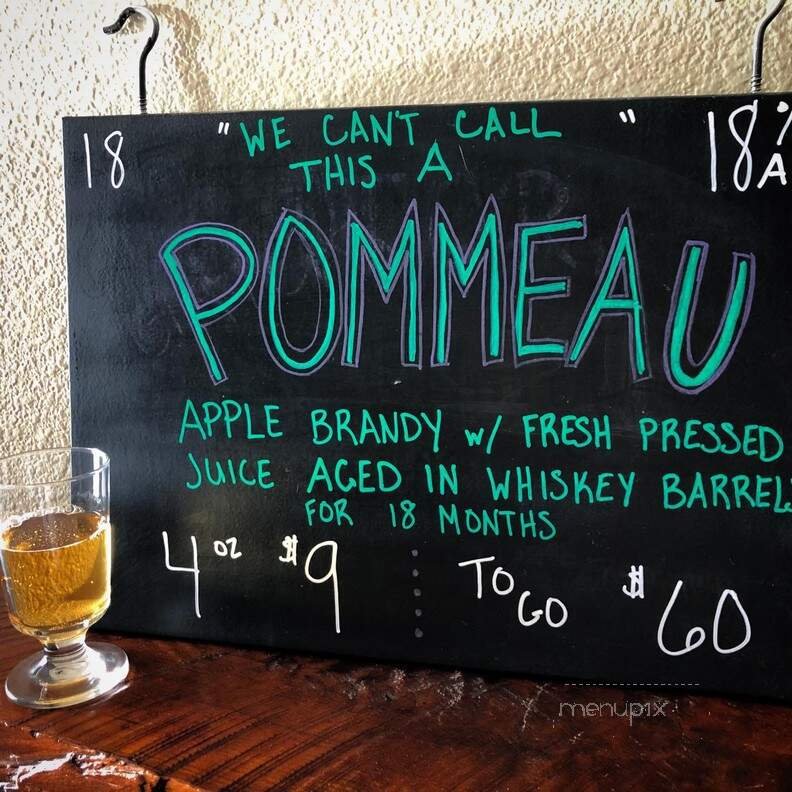 18
"WE CAN'T CALL "
18%
THIS A
A
POMMEAU
APPLE BRANDY w/ FRESH PRESSED
JUICE AGED IN WHISKEY BARREL
FOR 18 MONTHS
4 oz $9
TO GO $60
menupix